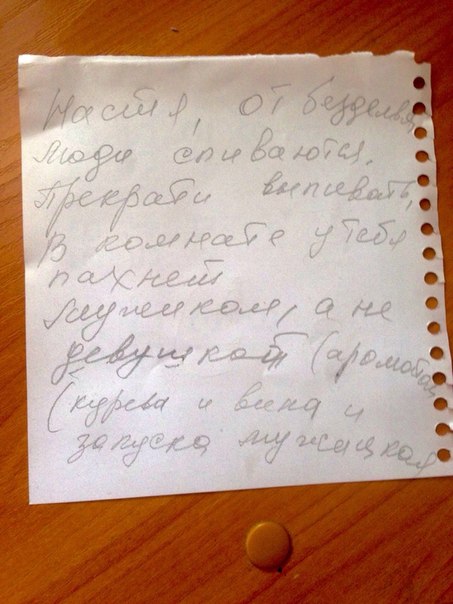 Настя, от безделья
люди спиваются.
Прекрати выпивать,
В комнате у тебя
пахнет
мужиком, а не
девушкой (аромат
(курева и вина и
запуска мужицкая